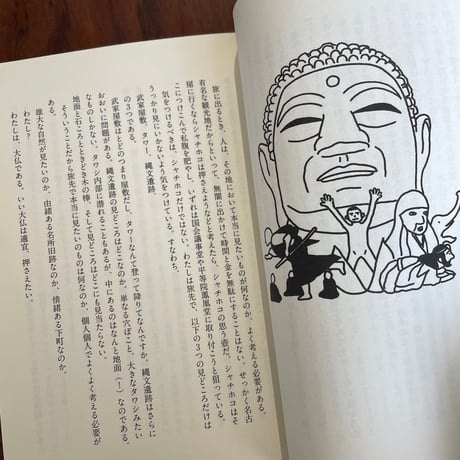 旅に出るとき、人は、その地において本当に見たいものが何なのか、よく考える必要がある。
有名な観光地だからといって、無闇に出かけて時間と金を無駄にすることはない。せっかく名古
屋に行くなら、シャチホコは押さえようなどと考えたら、シャチホコの思う壺だ。シャチホコはそ
こにつけこんで私腹を肥やし、いずれは国会議事堂や平等院鳳凰堂に取り付こうと狙っている。
気をつけるべきは、シャチホコだけではない。わたしは旅先で、以下の3つの見どころだけは
うっかり見にいかないよう気をつけている。すなわち、
武家屋敷、タワー、縄文遺跡
の3つである。
武家屋敷はとどのつまり屋敷だし、タワーなんて登って降りてなんですか。縄文遺跡はさらに
おおいに問題がある。縄文遺跡の見どころはどこなのか。単なる穴ぼこと、大きなタワシみたい
なものしかない。タワシ内部に潜れることもあるが、中にあるのはなんと地面（！）なのである。
地面と石ころときどき木の棒。そして見どころはどこにも見当たらない。
そういうことだから旅先で本当に見たいものは何なのか、個人個人でよくよく考える必要が
ある。
雄大な自然が見たいのか、由緒ある名所旧跡なのか、情緒ある下町なのか。
わたし？
わたしは、大仏である。いい大仏は適宜、押さえたい。